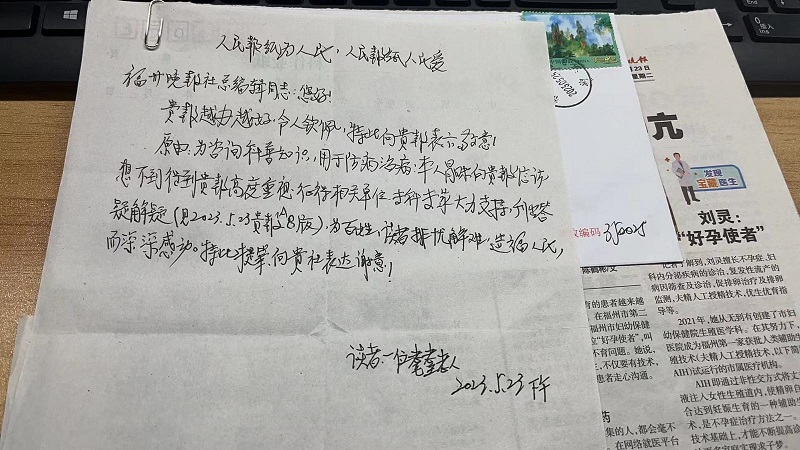 人民报纸为人民，人民报纸人民爱
福州晚报社总编辑同志：您好！
贵报越办越好，令人钦佩，特此向贵报表示敬意！
原由：为咨询科普知识，用于防病治病；本人冒昧向贵报信访
想不到得到贵报高度重视
相关单位专科支菜大力支持，刊登答
疑解疑（见2023.5.23贵报A8版），为百姓、读者排忧解难，造福人民，
而深深感动。特此提笔向贵社表达谢意！
读者：一位耄耋老人
2023.5.23下午
编码 350025
23日
星期二
亢
发现
宝藏医生
刘灵：
“好孕使者”
刘灵擅长不孕症、妇
科内分泌疾病的诊治，复发性流产的
病因筛查及诊治，促排卵治疗及排卵
监测，夫精人工授精技术，优生优育指
导等。
2021年，她从无到有创建了市妇
幼保健院生殖医学科。在其努力下，
医院成为福州第一家获批人类辅助生
殖技术（夫精人工授精技术，以下简
AIH）试运行的市属医疗机构。
AIH即通过非性交方式将丈
液注入女性生殖道内，使精卵自
合达到妊娠生育的一种辅助生
术，是不孕症治疗方法之一。
技术基础上，才能不断提高诊
的患者越来越
在福州市第二
福州市妇幼保健
“好孕使者”，叫
不有问题。她说，
不仅要有技术，
患者走心沟通。
药
集的人，都会毫不
在网络就医平台
Ins